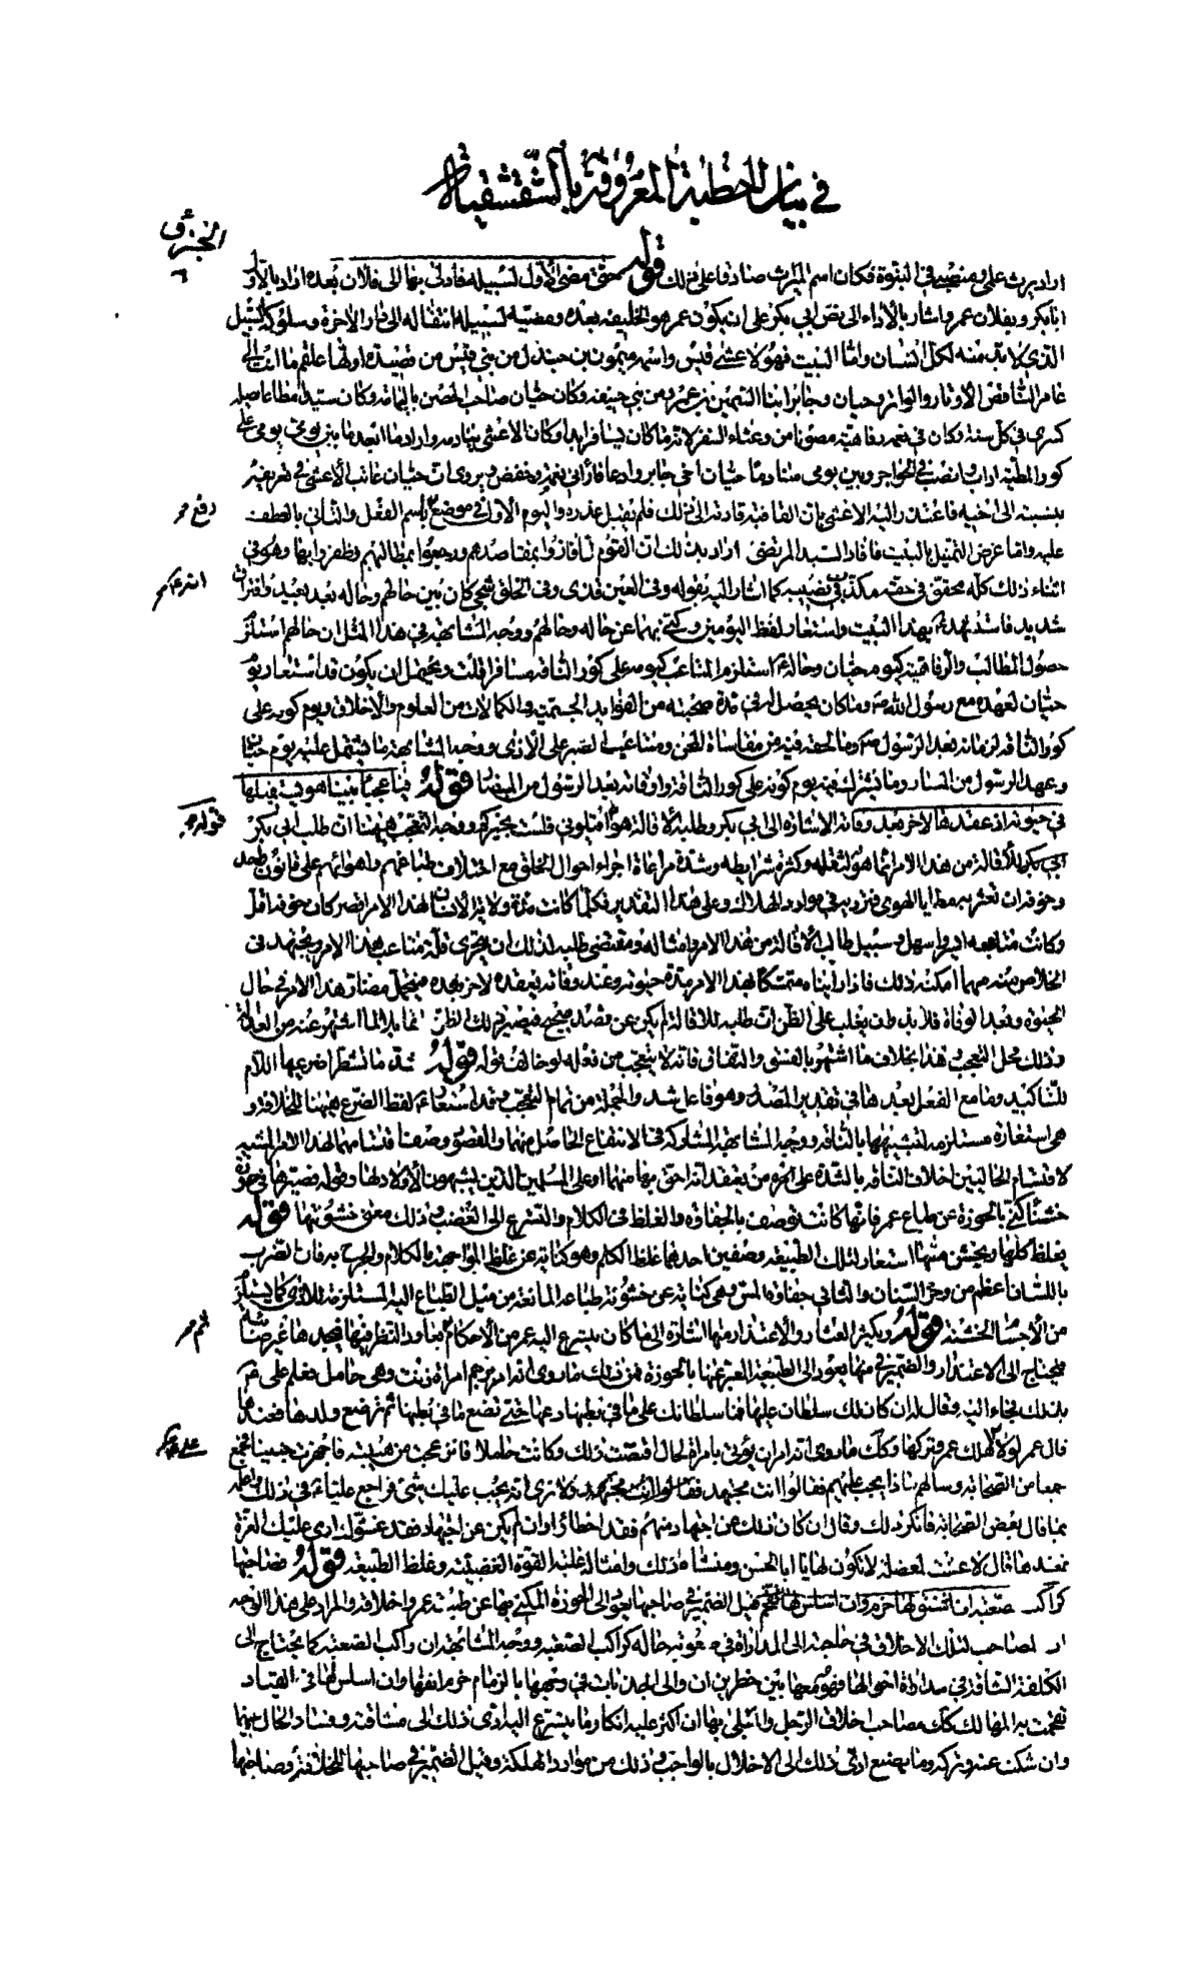 في بيان الخطبة المعروفة بالشقشقية
الجزء
اراد يرث علمي ومنصبي في النبوة فكان اسم الميراث صادقا على ذلك قوله حتى مضى الأول لسبيله فادلى بها الى فلان بعده اراد بالأول
ابابكر وبفلان عمر واشار بالأداء الى نص ابي بكر على ان يكون عمر هو الخليفه بعده ومضيه لسبيله انتقاله الى دار الاخرة وسلوكه السبيل
الذي لا بد منه لكل انسان واما البيت فهو لاعشى قيس واسمه ميمون بن جندل من بني قيس من قصيدة اولها علقم ما انت الى
عامر الناقض الاوتار والواتر وحيان وجابر ابنا السمين بن عمرو من بني حنيفه وكان حيان صاحب الحصن باليمامه وكان سيدا مطاعا يصله
كسرى في كل سنة وكان في نعمه ورفاهية مصونا من وعثاء السفر لانه ما كان يسافر ابدا وكان الاعشى ينادمه واراد ما ابعد ما بين يومي يومي على
كور المطية اداب وانصب في الهواجر وبين يومي منادما حيان اخي جابر وادعا قارا في نعمة وخفض ويروى ان حيان عاتب الأعشى في تعريفه
بنسبته الى اخيه فاعتذر اليه الاعشى بان القافية قادته الى ذلك فلم يقبل عذره واليوم الأول في موضع رفع باسم الفعل والثاني بالعطف
عليه واما غرض التمثيل بالبيت فافاد السيد المرتضى اراد بذلك ان القوم لما فازوا بمقاصدهم ورجعوا بمطالبهم وظفروا بها وهو في
اثناء ذلك كله محقق في حقه مكذب في نصيبه كما اشار اليه بقوله وفي العين قذى وفي الحلق شجى كان بين حالهم وحاله بعد بعيد وافتراق
شديد فاستشهد بهذا البيت واستعار لفظ اليومين وكنى بهما عن حاله وحالهم ووجه المشابهة في هذا المثل ان حالهم استلزم
حصول المطالب والرفاهية كيوم حيان وحاله استلزم المتاعب كيومه على كور الناقه مسافرا قلت ويحتمل ان يكون قد استعار يوم
حيان لعهده مع رسول الله ص وما كان يحصل له في مدة صحبته من الفوايد الجسمية والكمالات من العلوم والأخلاق ويوم كوره على
كور الناقه لزمانه بعد الرسول ص وما لحقه فيه من مقاساة المحن ومتاعب الصبر على الأذى ووجه المشابهة ما يشتمل عليه يوم حيان
وعهد الرسول من المسار وما يشترك فيه يوم كونه على كور الناقة واوقاته بعد الرسول من المضار قوله فيا عجبا بينا هو يستقيلها
في حيوته اذ عقدها لاخر بعد وفاته الاشارة الى ابي بكر وطلبه الأقالة هو اقيلوني فلست بخيركم ووجه التعجب ههنا ان طلب ابي بكر
ابي بكر للأقالة من هذا الامر انما هو لثقله وكثرة شرايطه وشدة مراعاة اجراء احوال الخلق مع اختلاف طباعهم واهوائهم على قانون واحد
وخوفه ان تعثر به مطايا الهوى فترديه في موارد الهلاك وعلى هذا التقدير فكلما كانت مدة ولاية الأنسان لهذا الامر اقصر كان خوفه اقل
وكانت متاعبه ايسر واسهل وسبيل طالب الأقالة من هذا الامر وامثاله ومقتضى طلبه لذلك ان يتحرى قلة متاعب هذا الامر ويجتهد في
الخلاص منه مهما امكنه ذلك فاذا راينا متمسكا بهذا الامر مدة حيوته وعند وفاته يعقده لاخر بعده فيتحمل مضار هذا الامر في حال
الحيوة وبعد الوفاة فلا بد ان يغلب على الظن ان طلبه للاقالة لم يكن عن قصد صحيح فيصير ذلك الظن مقابلا لما اشتهر عنه من العدالة
وذلك محل التعجب هذا بخلاف ما اشتهر بالفسق والنفاق فانه لا يتعجب من فعله لو خالف قوله قوله لشد ما تشطرا ضرعيها اللام
للتاكيد وما مع الفعل بعدها في تقدير المصدر وهو فاعل شد والجملة من تمام التعجب وقد استعار لفظ الضرع ههنا للخلافة و
هي استعارة مستلزمه لتشبيهها بالناقه ووجه المشابهة المشاركة في الانتفاع الحاصل منهما والمقصود وصف اقتسامهما لهذا الامر المشبه
لاقتسام الحالبين اخلاف الناقه بالشدة على اخره من يعتقد انه احق بها منهما او على المسلمين الذين يشبهون الأولاد لها وقوله فصيرها في حوزة
خشناء كنى بالحوزة عن طباع عمر فانها كانت توصف بالجفاوة والغلظ في الكلام والتسرع الى الغضب وذلك معنى خشونتها قوله
يغلظ كلمها ويخشن مسها استعار لتلك الطبيعه وصفين احدهما غلظ الكلم وهو كناية عن غلظ المواجهة بالكلام والجرح به فان الضرب
باللسان اعظم من وخز السنان والثاني جفاوة المس وهي كناية عن خشونة طباعه المانعة من ميل الطباع اليه المستلزمة للاذى كما يستلزم
من الأجسام الخشنة قوله ويكثر العثار والأعتذار منها اشارة الى ما كان يتسرع اليه عمر من الأحكام ثم يعاود النظر فيها فيجدها غير صائبة
فيحتاج الى الاعتذار والضمير في منها يعود الى الطبيعة المعبر عنها بالحوزة فمن ذلك ما روى انه امر برجم امراة زنت وهي حامل فعلم علي ع
بذلك فجاء اليه وقال له ان كان لك سلطان عليها فما سلطانك على ما في بطنها دعها حتى تضع ما في بطنها ثم ترضع ولدها فعندها
قال عمر لولا علي لهلك عمر وتركها وكك ما روى انه امر ان يؤتى بامراة لحال اقتضت ذلك وكانت حاملا فانزعجت من هيبته فاجهزت جنينا فجمع
جمعا من الصحابة وسالهم ماذا يجب عليهم فقالوا انت مجتهد فقالوا انت مجتهد ولا نرى انه يجب عليك شئ فراجع عليا ع في ذلك واعلمه
بما قال بعض الصحابة فانكر ذلك وقال ان كان ذلك عن اجتهاد منهم فقد اخطاؤا وان لم يكن عن اجتهاد فقد غشوك ارى عليك الغرة
فعندها قال لا عشت لمعضلة لا تكون لها يا ابا الحسن ومنشاء ذلك وامثاله غلبة القوة الغضبية وغلظ الطبيعه قوله فصاحبها
كراكب صعبة ان اشنق لها خرم وان اسلس لها تقحم قيل الضمير في صاحبها يعود الى الحوزة المكنى بها عن طبيعة عمر واخلاقه والمراد على هذا الوجه
ان لصاحب لتلك الاخلاق في حاجته الى المداراة في صعوبة حاله كراكب الصعبة ووجه المشابهة ان راكب الصعبة كما يحتاج الى
الكلفة الشاقة في مداراة احوالها فهو معها بين خطرين ان والى الجذبات في وجهها بالزمام خرم انفها وان اسلس لها في القياد
تقحمت به المهالك كك مصاحب اخلاق الرجل والمبتلى بها ان اكثر عليه انكار ما يتسرع اليه ادى ذلك الى مشاقته وفساد الحال بينهما
وان سكت عنه وتركه وما يصنع ادى ذلك الى الاخلال بالواجب وذلك من موارد الهلكة وقيل الضمير في صاحبها للخلافة وصاحبها